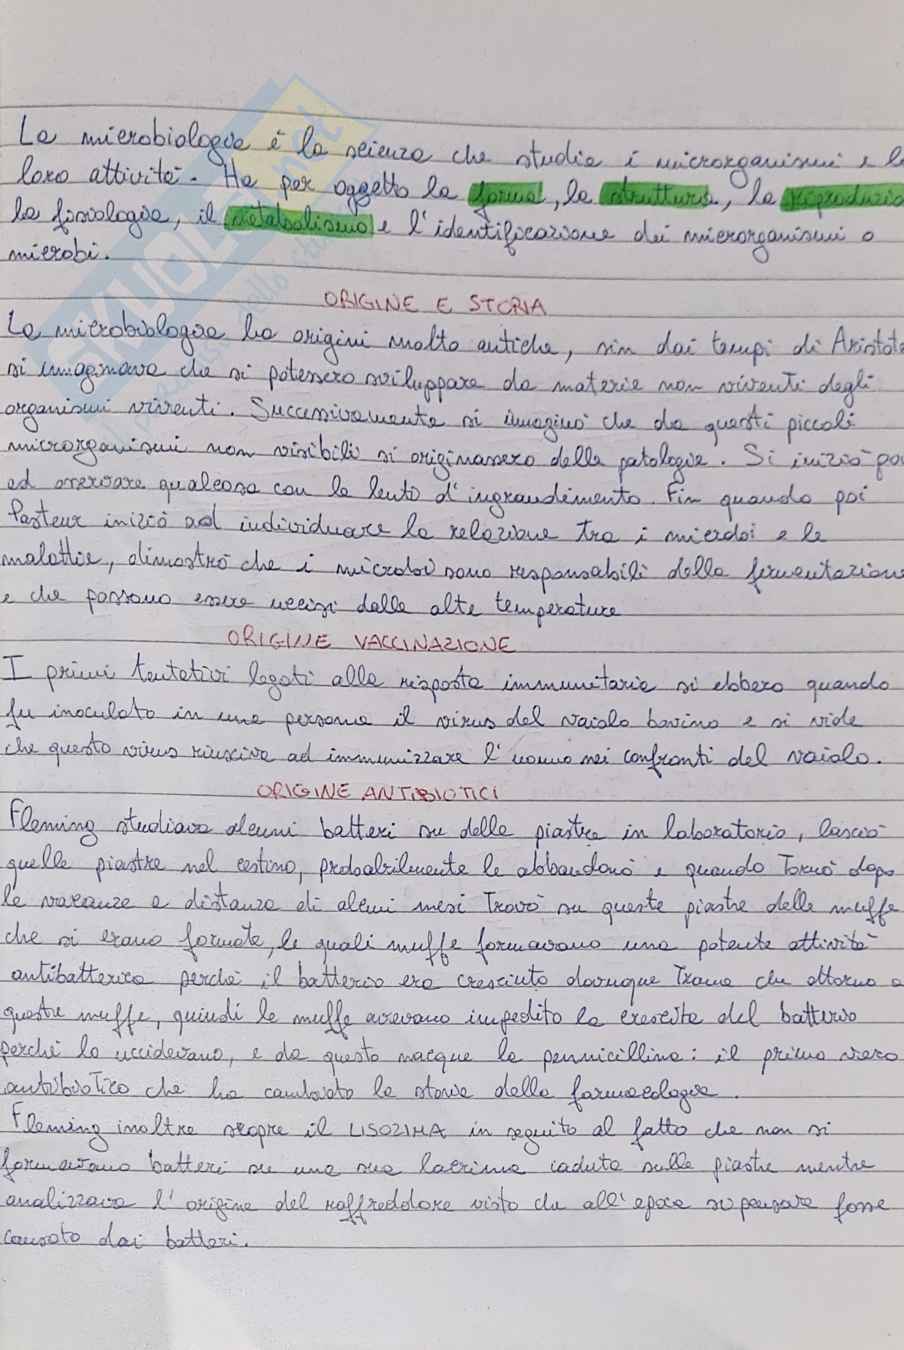 La microbiologia è la scienza che studia i microrganismi e le
loro attività. Ha per oggetto la forma, la struttura, la reproduzio
la fisiologia, il metabolismo e l'identificazione dei microrganismi o
microbi.
ORIGINE E STORIA
La microbiologia ha origini molto antiche, sin dai tempi di Aristote
si immaginava che si potessero sviluppare da materie non viventi degli
organismi viventi. Successivamente si immaginò che da questi piccoli
microrganismi non visibili si originassero delle patologie. Si iniziò po
ad osservare qualcosa con la lente d'ingrandimento. Fin quando poi
Pasteur iniziò ad individuare la relazione tra i microbi e le
malattie, dimostrò che i microbi sono responsabili della fermentazione
e che possono essere uccisi dalle alte temperature
ORIGINE VACCINAZIONE
I primi tentativi legati alla risposta immunitaria si ebbero quando
fu inoculato in una persona il virus del vaiolo bovino e si vide
che questo virus riusciva ad immunizzare l'uomo nei confronti del vaiolo.
ORIGINE ANTIBIOTICI
Fleming studiava alcuni batteri su delle piastre in laboratorio, lasciò
quelle piastre nel cestino, probabilmente le abbandonò e quando tornò dopo
le vacanze a distanza di alcuni mesi trovò su queste piastre delle muffe
che si erano formate, le quali muffe formavano una potente attività
antibatterica perché il batterio era cresciuto dovunque tranne che attorno a
queste muffe, quindi le muffe avevano impedito la crescita del batterio
perché lo uccidevano, e da questo nacque la pennicillina: il primo vero
antibiotico che ha cambiato la storia della farmacologia.
Fleming inoltre scopre il LISOZIMA in seguito al fatto che non si
formavano batteri su una sua lacrima caduta sulle piastre mentre
analizzava l'origine del raffreddore visto che all'epoca si pensava fosse
causato dai batteri.
SKUOLA.net